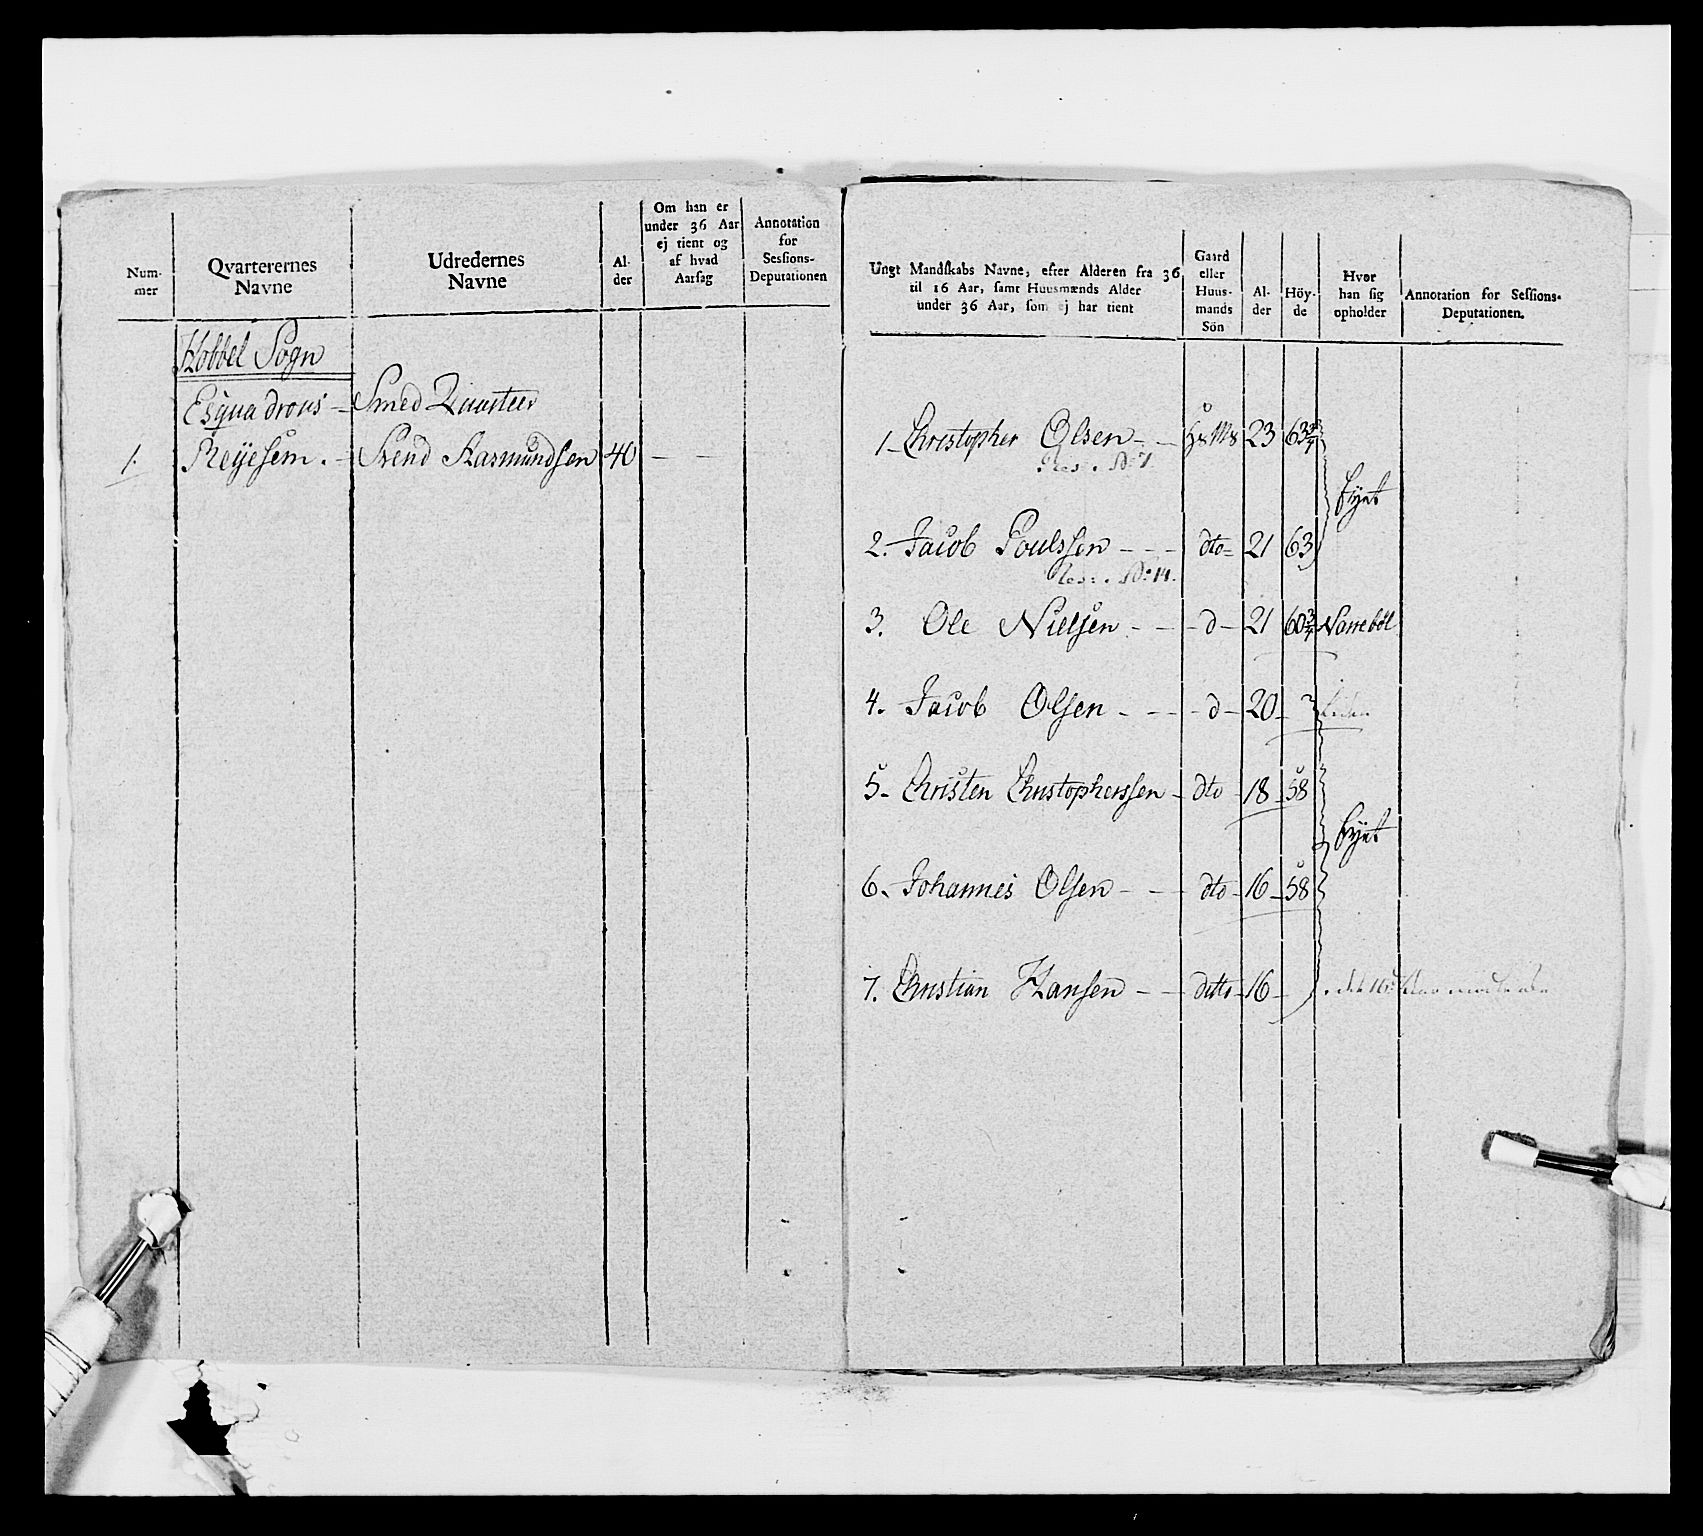 Num-
mer
Qvarterernes
Navne
Udredernes
Navne
Al-
der
Om han er
under 36 Aar
ej tient og
af hvad
Aarsag
Annotation
for
Sessions-
Deputationen
Hobbel Sogn
Esquadrons - Smed Quarteer
1. Reijesem. - Svend Aasmundsen 40 - -
Ungt Mandskabs Navne, efter Alderen fra 36
til 16 Aar, samt Huusmænds Alder
under 36 Aar, som ej har tient
Gaard
eller
Huus-
mands
Sön
Al-
der
Höy-
de
Hvor
han sig
opholder
Annotation for Sessions-
Deputationen.
1 Christopher Olsen - - 23 63 3/4
Res. No 7.
Bÿet
2. Jacob Poulssen - - - dto - 21 63
Res. No 14.
3. Ole Nielsen - - - d - 21 60 3/4
4. Jacob Olsen - - - d - 20 -
5 - Christen Christopherssen - dto - 18 - 58
Bÿet
6. Johannes Olsen - - dto - 16 - 58
7. Christian Hansen - - ditto - 16 -